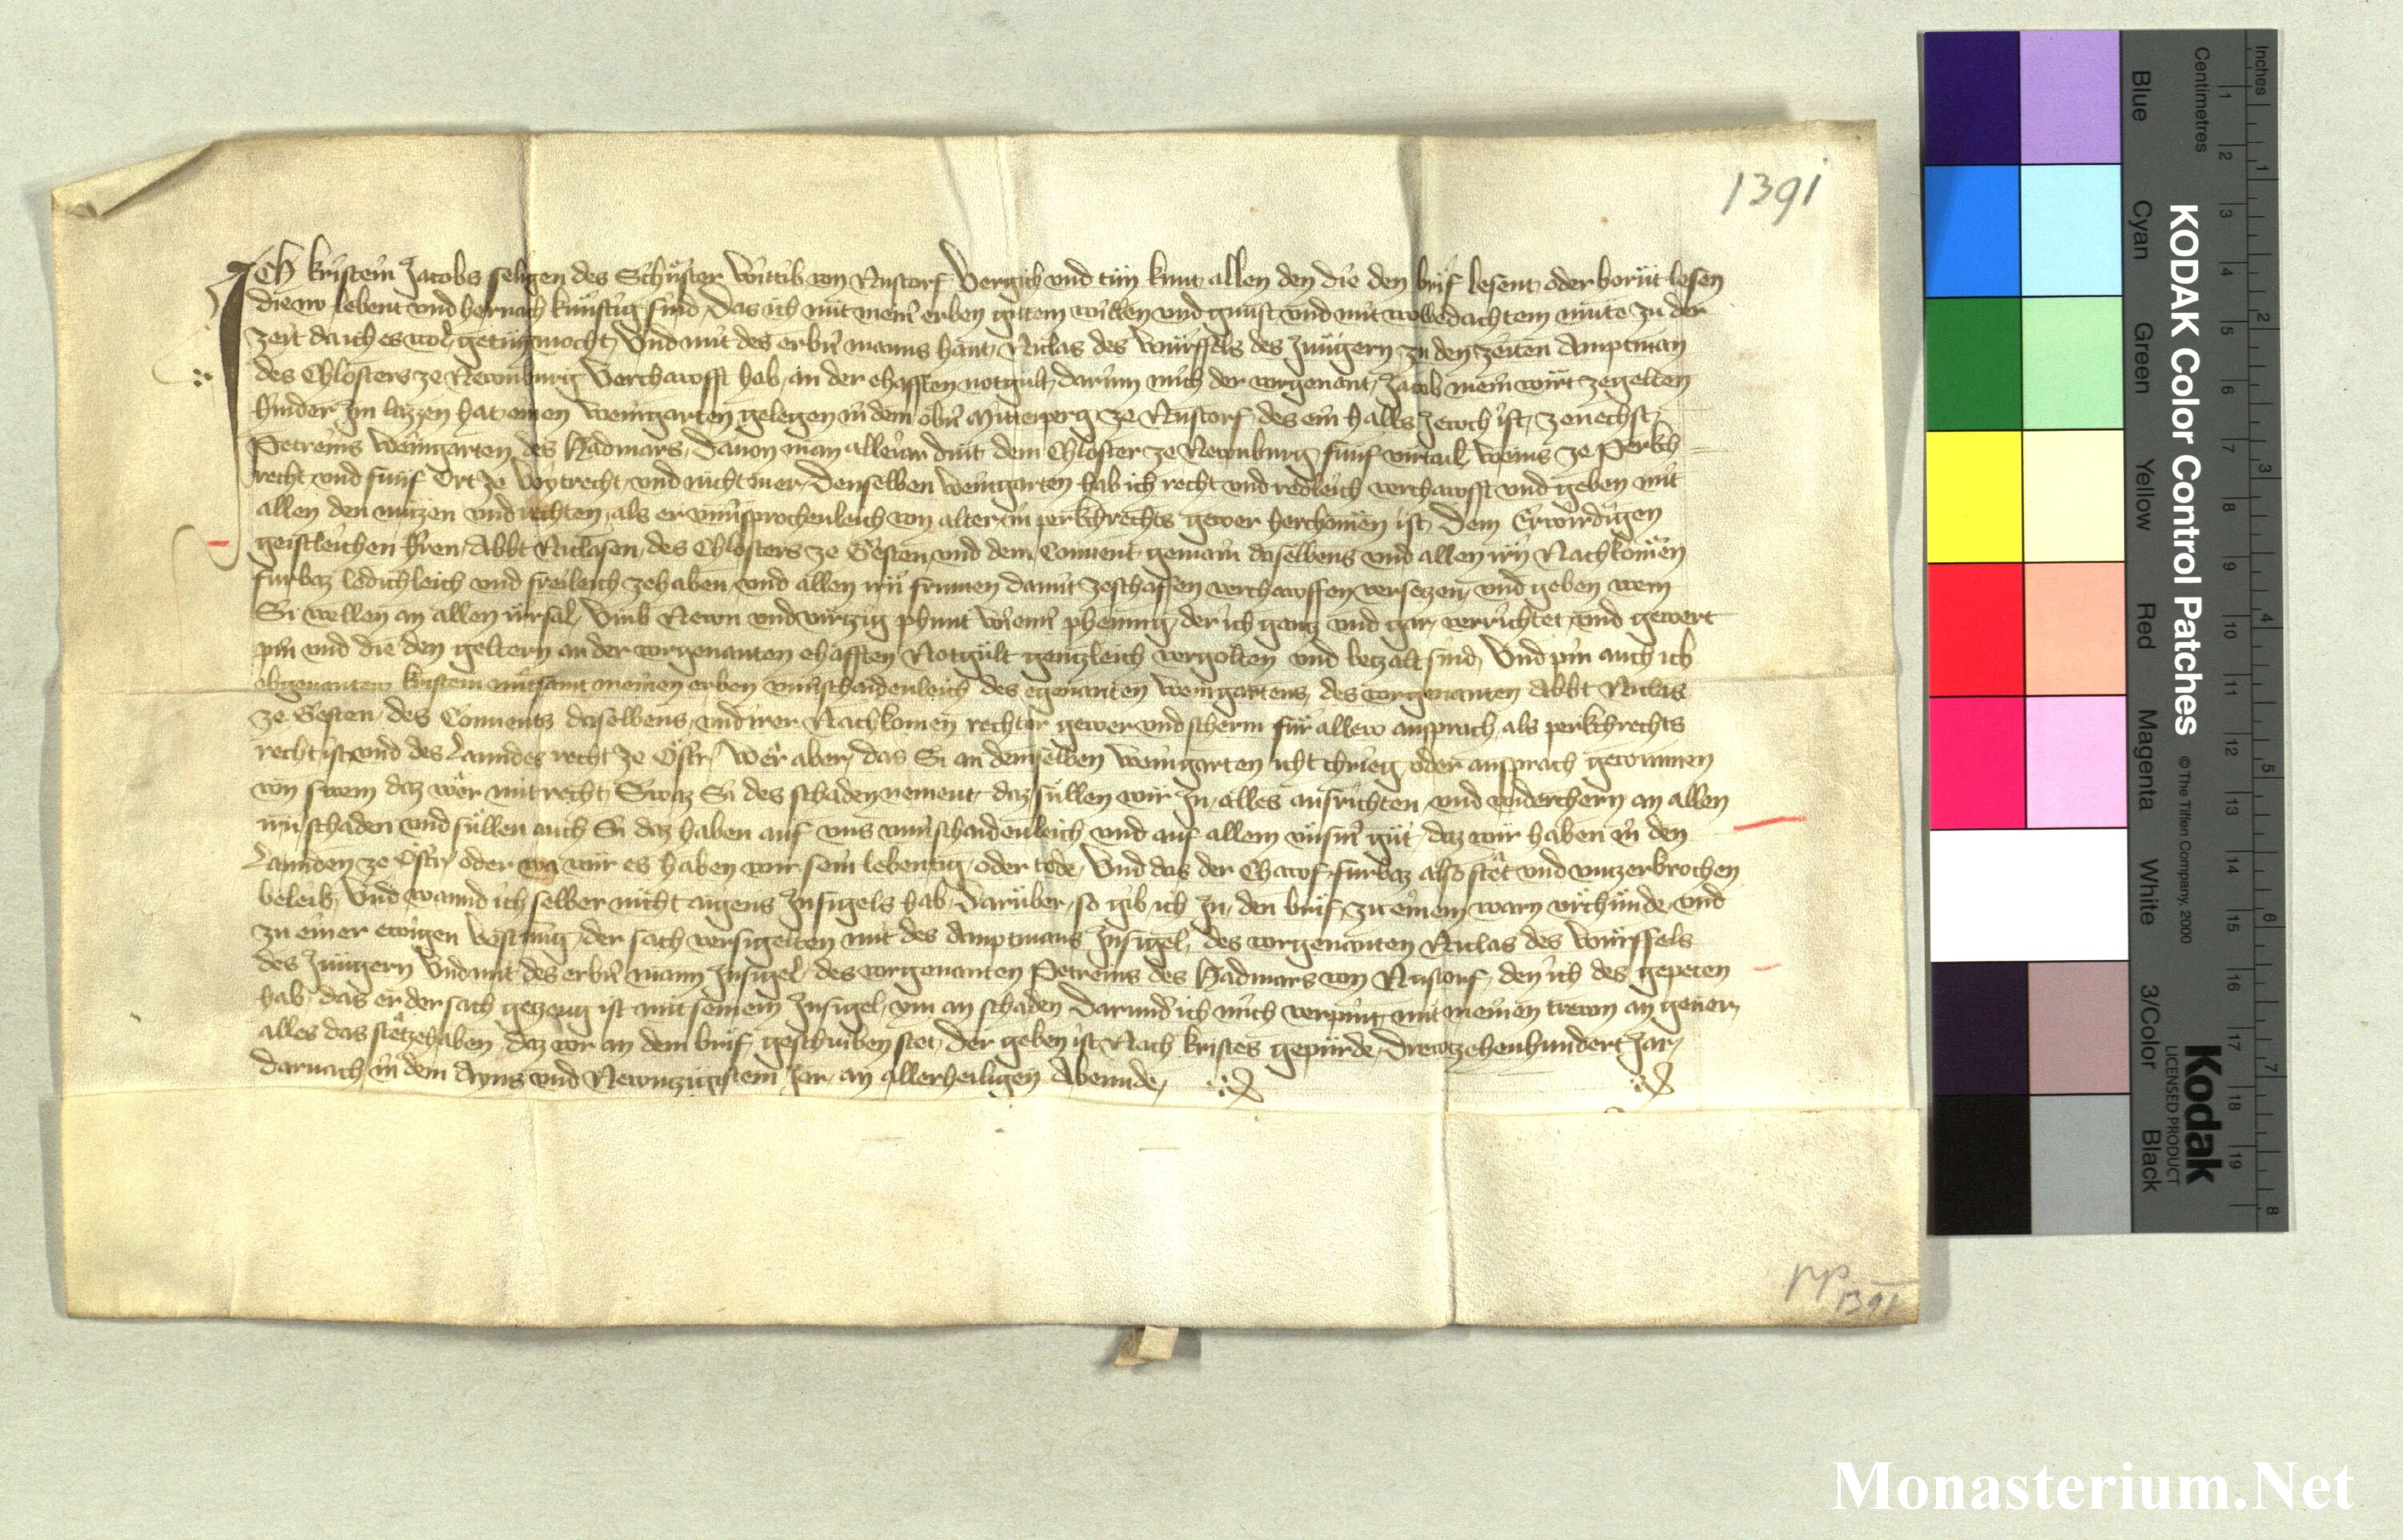 1391
Ich kristein Jacobs seligen des Schuster wittib von Nustorf Vergich vnd tun kunt allen den die den brif lesent oder horent lesen
die nw lebent vnd hernach kunftig sind Das ich mit meinr erben gutem willen vnd gunst vnd mit wolbedachtem mute zu der
zeit da ich es wol getun mocht Vnd mit des erbern manns hant Niclas des Würffels des Jungern zu den zeiten Amptman
des Chlosters ze Newnburg Verchawfft hab an der ehafften notgult darumb mich der vorgenant Jacob mein wirt zegelten
hinder Im lazzen hat einen weingarten gelegen in dem obern ze Nustorf des ein halbs Jewch ist zenechst
Petreins weingarten des Hadmars Dauon man alleiar dint dem Chloster ze Newnburg funf virtail weins ze Perkch
recht vnd funf Ort ze voytrecht vnd nicht mer Denselben weingarten hab ich recht vnd redleich verchawfft vnd geben mit
allen den nutzen vnd rechten als er vnuersprochenleich von alter in perkchrechts gewer herchomen ist Dem Erwirdigen
geistleichen hren Abbt Niclasen des Chlosters ze Gesten vnd dem Conuent gemain daselbens vnd allen irn Nachkomen
furbaz ledichleich vnd freileich zehaben vnd allen irn frumen damit zeschaffen verchawffen versetzen vnd geben wem
Si wellen an allen irrsal Vmb Newn vnd virtzig phunt wienner phennig der ich gantz vnd gar verrichtet vnd gewert
pin vnd die den geltern an der vorgenanten ehafften Notgult gentzleich vergolten vnd betzalt sind Vnd pin auch ich
obgenantew kristein mitsamt meinen erben vnuerschaidenleich des egenanten weingartens des vorgenanten Abbt Niclas
ze Gesten des Conuents daselbens vnd irer Nachkomen rechter gewer vnd scherm fur allew ansprach als perkchrechts
recht ist vnd des Lanndes recht ze Osterr Wer aber das Si an demselben weingarten icht chrieg oder ansprach gewunnen
von swem daz wer mit recht Swaz Si des schaden nement daz sullen wir In alles ausrichten vnd widerchern an allen
irn schaden vnd sullen auch Si daz haben auf vns vnuerschaidenleich vnd auf allem vnserm gut daz wir haben in den
Lannden ze Osterr oder wa wir es haben wir sein lebentig oder tode Vnd das der Chawf furbaz also stet vnd vnzerbrochen
beleib Vnd wannd ich selber nicht aigens Insigels hab Darüber so gib ich In den brif zu einem warn vrchunde vnd
zu einer ewigen vestnung der sach versigelten mit des Amptmans Insigel des vorgenanten Niclas des Würffels
des Jungern Vnd mit des erbern mann Insigel des vorgenanten Petreins des Hadmars von Nustorf den ich des gepeten
hab das er der sach getzeug ist mit seinem Insigel im an schaden Darunder ich mich verpint mit meinen trewn an geuer
alles das stet zehaben daz vor an dem brif geschriben stet Der geben ist Nach kristes gepurde Drewtzehenhundert Jar
darnach in dem Ayns vnd Newntzigistem Jar an allerheiligen Abennde
1391
Inches
Centimetres
KODAK Color Control Patches
© The Tiffen Company, 2000
Kodak
LICENSED PRODUCT
Blue
Cyan
Green
Yellow
Red
Magenta
White
3/Color
Black
1 2 3 4 5 6 7 8 9 10 11 12 13 14 15 16 17 18 19
1 2 3 4 5 6 7 8
Monasterium.Net